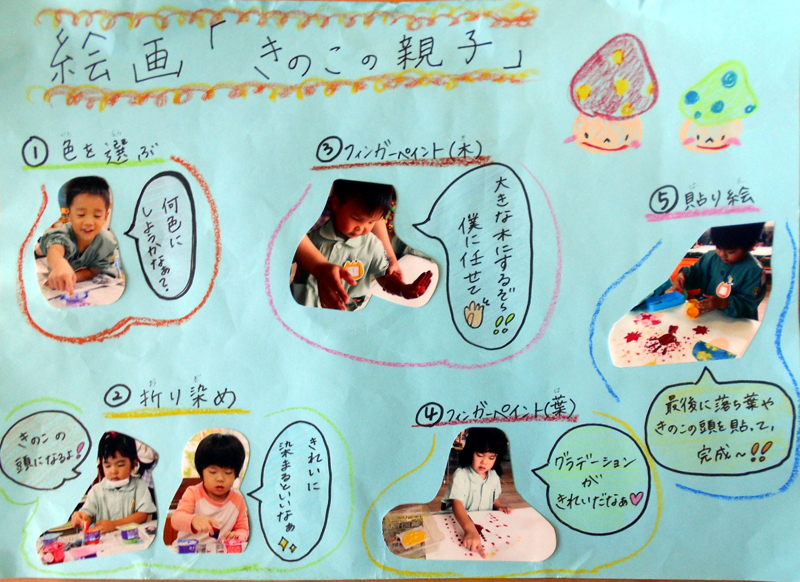 絵画「きのこの親子」
①色を選ぶ
何色に
しようかなぁ?
②折り染め
きのこの
頭になるよ!
きれいに
染まるといいなぁ
③フィンガーペイント(木)
大きな木にするぞぅ!!
僕に任せて
④フィンガーペイント(葉)
グラデーション
が
きれいだなぁ
⑤貼り絵
最後に落ち葉や
きのこの頭を貼って、
完成〜!!